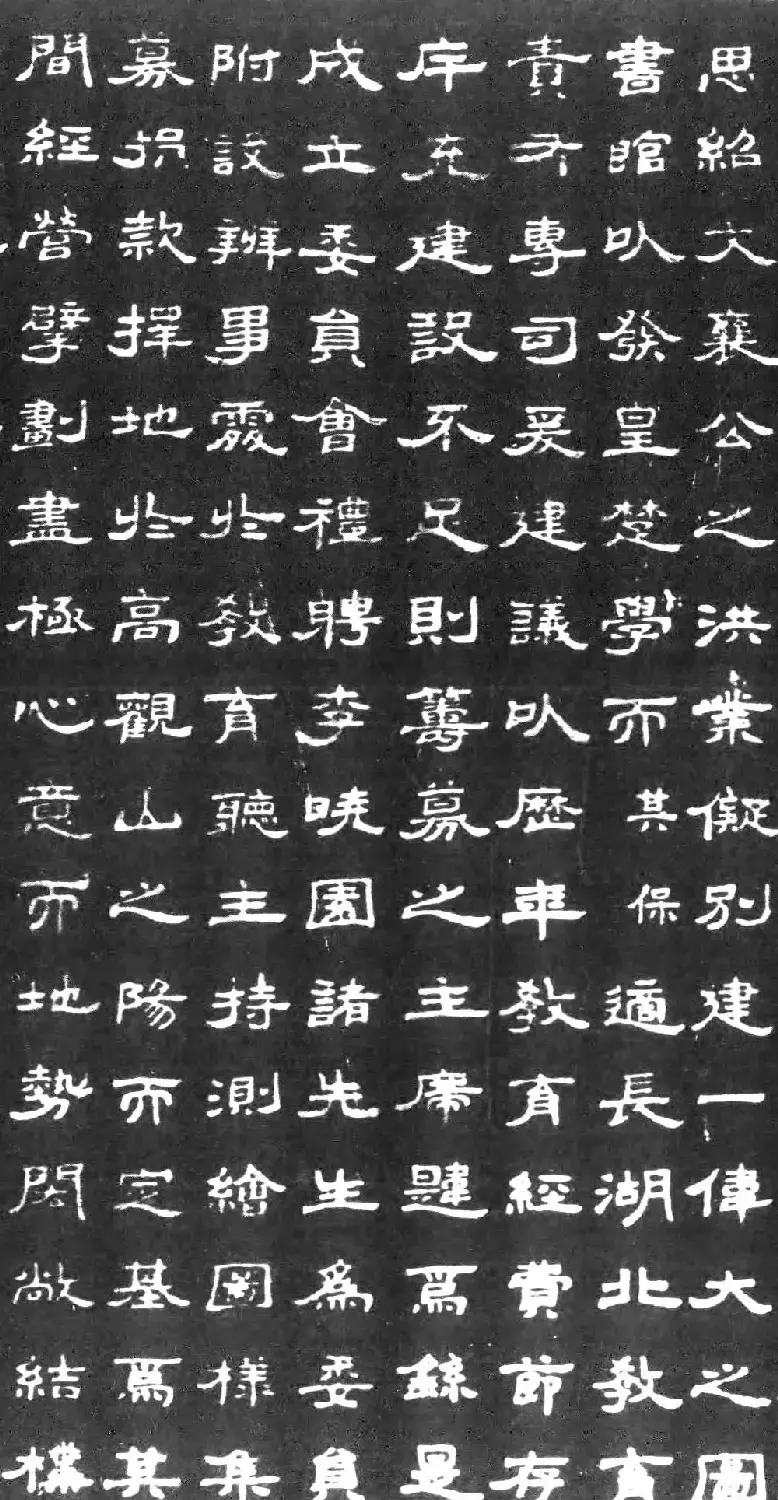 思紹文襄公之洪業儗別建一偉大之圖
書館以發皇楚學而其保適長湖北教育
責有專司爰建議以歷年教育經費節存
斥充建設不足則籌募之主席韙焉繇是
成立委員會禮聘李曉園諸先生為委員
附設辦事處於教育聽主持測繪圖樣集
募捐款擇地於高觀山之陽而定基焉其
間經營擘劃盡極心意而地勢閎敞結構